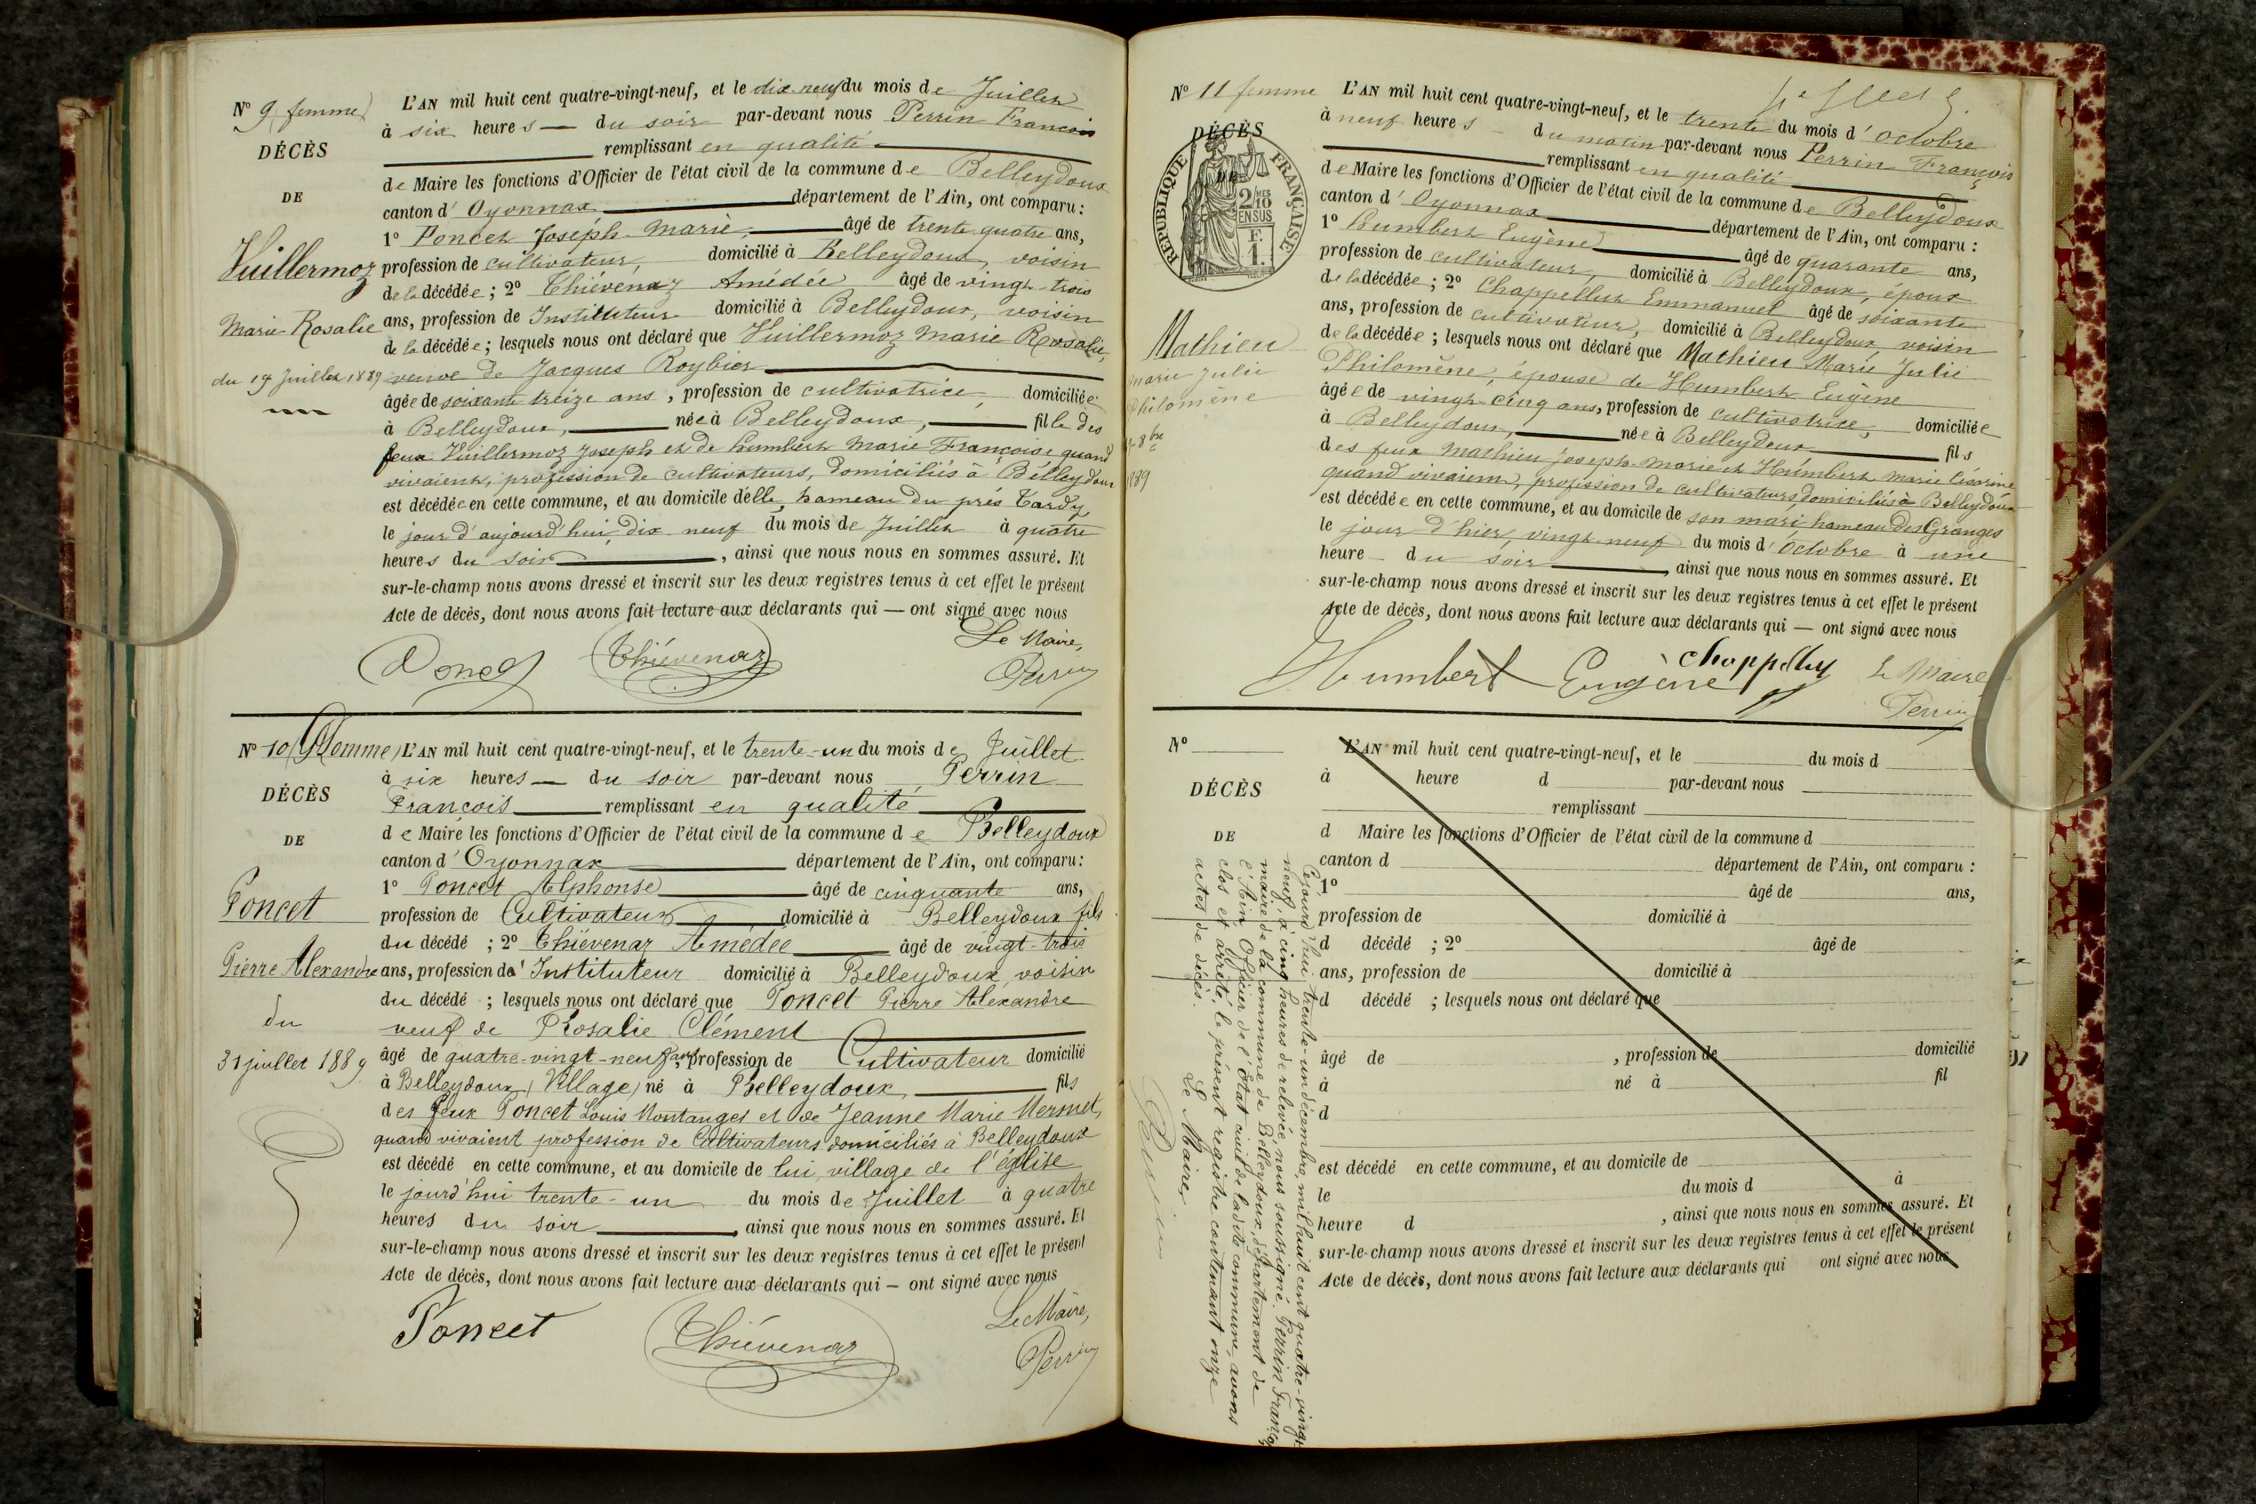 N° 9 femme
DÉCÈS
DE
Vuillermoz
Marie Rosalie
du 19 Juillet 1889
L'AN mil huit cent quatre-vingt-neuf, et le dix neuf du mois de Juillet
à six heures — du soir par-devant nous Perrin François
remplissant en qualité
de Maire les fonctions d'Officier de l'état civil de la commune de Belleydoux
canton d'Oyonnax département de l'Ain, ont comparu :
1° Poncet Joseph Marie, âgé de trente quatre ans,
profession de cultivateur, domicilié à Belleydoux, voisin
de la décédée ; 2° Thiévenaz Amédée âgé de vingt-trois
ans, profession de Instituteur domicilié à Belleydoux, voisin
de la décédée ; lesquels nous ont déclaré que Vuillermoz Marie Rosalie,
veuve de Jacques Roybier
âgée de soixante treize ans, profession de cultivatrice, domiciliée
à Belleydoux, née à Belleydoux, fille des
feux Vuillermoz Joseph et de humbert Marie Françoise quand
vivaient, profession de cultivateurs, domiciliés à Belleydoux
est décédée en cette commune, et au domicile d'elle, hameau du prés Tardy
le jour d'aujourd'hui, dix neuf du mois de Juillet à quatre
heures du soir, ainsi que nous nous en sommes assuré. Et
sur-le-champ nous avons dressé et inscrit sur les deux registres tenus à cet effet le présent
Acte de décès, dont nous avons fait lecture aux déclarants qui — ont signé avec nous
Poncet Thiévenaz Le Maire,
Perrin
N° 10 (Homme)
DÉCÈS
DE
Poncet
Pierre Alexandre
du
31 juillet 1889
L'AN mil huit cent quatre-vingt-neuf, et le trente-un du mois de Juillet
à six heures — du soir par-devant nous Perrin
François remplissant en qualité
de Maire les fonctions d'Officier de l'état civil de la commune de Belleydoux
canton d'Oyonnax département de l'Ain, ont comparu :
1° Poncet Alphonse âgé de cinquante ans,
profession de Cultivateur domicilié à Belleydoux fils
du décédé ; 2° Thiévenaz Amédée âgé de vingt-trois
ans, profession d' Instituteur domicilié à Belleydoux, voisin
du décédé ; lesquels nous ont déclaré que Poncet Pierre Alexandre
veuf de Rosalie Clément
âgé de quatre-vingt-neuf ans, profession de Cultivateur domicilié
à Belleydoux (Village) né à Belleydoux, fils
des feux Poncet Louis Montanges et de Jeanne Marie Mermet,
quand vivaient profession de Cultivateurs domiciliés à Belleydoux
est décédé en cette commune, et au domicile de lui, village de l'église
le jourd'hui trente-un du mois de Juillet à quatre
heures du soir, ainsi que nous nous en sommes assuré. Et
sur-le-champ nous avons dressé et inscrit sur les deux registres tenus à cet effet le présent
Acte de décès, dont nous avons fait lecture aux déclarants qui — ont signé avec nous
Poncet Thiévenaz Le Maire,
Perrin
N° 11 femme
DÉCÈS
RÉPUBLIQUE FRANÇAISE
2/10
EN SUS
F.
1.
Mathieu
Marie Julie
Philomène
8bre
1889
L'AN mil huit cent quatre-vingt-neuf, et le trente du mois d'octobre
à neuf heures – du matin par-devant nous Perrin François
remplissant en qualité
de Maire les fonctions d'Officier de l'état civil de la commune de Belleydoux
canton d'Oyonnax département de l'Ain, ont comparu :
1° humbert Eugène âgé de quarante ans,
profession de cultivateur, domicilié à Belleydoux, époux
de la décédée ; 2° Chappelluz Emmanuel âgé de soixante
ans, profession de cultivateur, domicilié à Belleydoux voisin
de la décédée ; lesquels nous ont déclaré que Mathieu Marie Julie
Philomène, épouse de Humbert Eugène
âgée de vingt-cinq ans, profession de cultivatrice, domiciliée
à Belleydoux, née à Belleydoux fils
des feux Mathieu Joseph-Marie et Humbert Marie Césarine
quand vivaient, profession de cultivateurs, domiciliés à Belleydoux
est décédée en cette commune, et au domicile de son mari, hameau des Granges
le jour d'hier, vingt-neuf du mois d'octobre à une
heure – du soir, ainsi que nous nous en sommes assuré. Et
sur-le-champ nous avons dressé et inscrit sur les deux registres tenus à cet effet le présent
Acte de décès, dont nous avons fait lecture aux déclarants qui — ont signé avec nous
Humbert Eugène Le Maire
Perrin
N°
DÉCÈS
DE
L'AN mil huit cent quatre-vingt-neuf, et le du mois d
à heure d par-devant nous
remplissant
d Maire les fonctions d'Officier de l'état civil de la commune d
canton d département de l'Ain, ont comparu :
1° âgé de ans,
profession de domicilié à
d décédé ; 2° âgé de
ans, profession de domicilié à
d décédé ; lesquels nous ont déclaré que
âgé de , profession de domicilié
à né à fil
d
est décédé en cette commune, et au domicile de
le du mois d à
heure d , ainsi que nous nous en sommes assuré. Et
sur-le-champ nous avons dressé et inscrit sur les deux registres tenus à cet effet le présent
Acte de décès, dont nous avons fait lecture aux déclarants qui ont signé avec nous
Cejourd'hui trente-un décembre, mil huit cent quatre-vingt
neuf, à cinq heures de relevée, nous soussigné, Perrin François
maire de la commune de Belleydoux, département de
l'Ain Officier de l'Etat civil de ladite commune, avons
clos et arrêté le présent registre contenant onze
actes de décès.
Le Maire,
Perrin